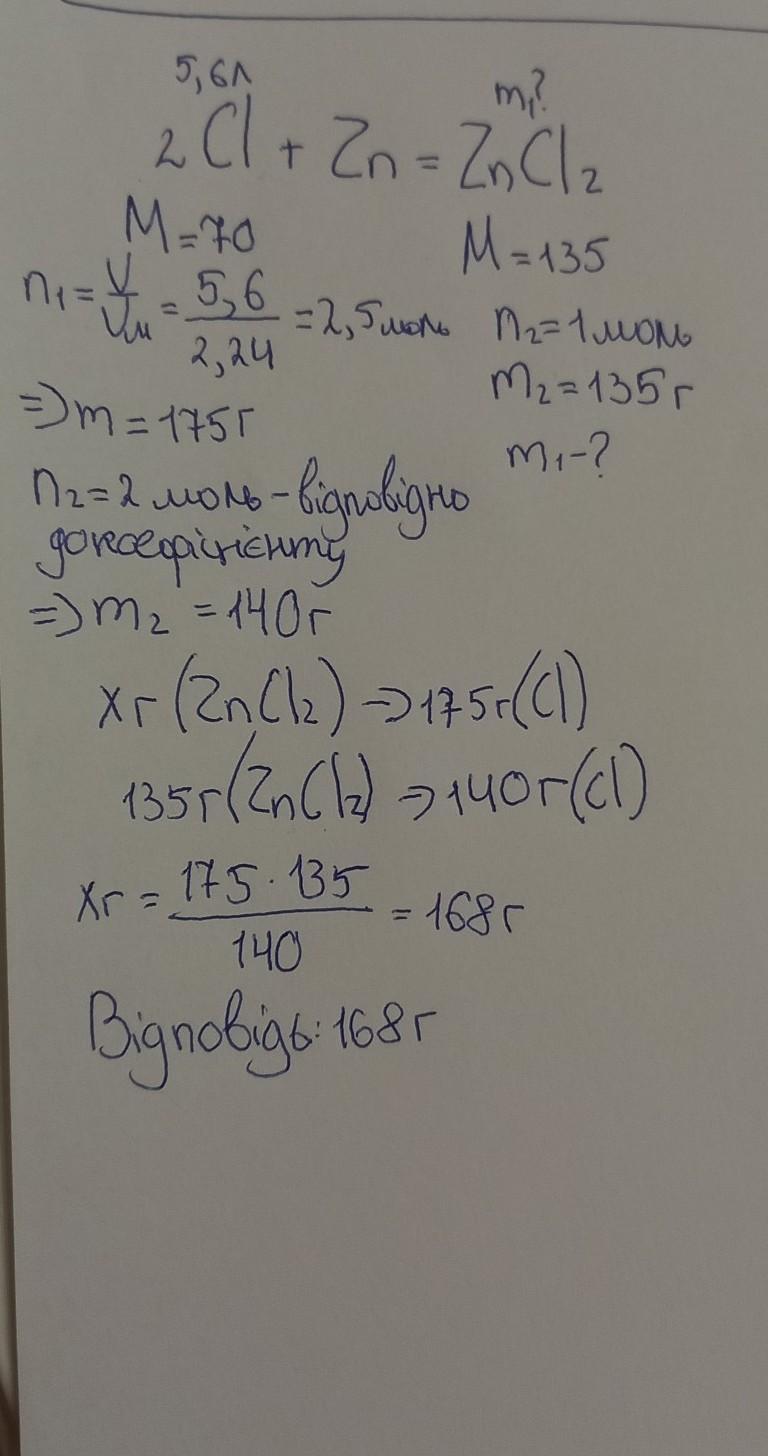 5,6л m₁?
2Cl + Zn = ZnCl₂
M=70 M=135
n₁=V/Vм=5,6/2,24=2,5моль n₂=1моль
=>m=175г m₂=135г
m₁-?
n₂=2 моль-відповідно
до коефіцієнту
=>m₂=140г
xг(ZnCl₂)->175г(Cl)
135г(ZnCl₂)->140г(Cl)
xг=175·135/140=168г
Відповідь:168г